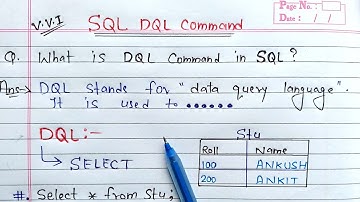 Page No. :
Date : / /
V.V.I SQL DQL Command
Q. What is DQL Command in SQL?
Ans→ DQL stands for "data query language".
It is used to ......
DQL:-
SELECT
Stu
Roll Name
100 ANKUSH
200 ANKIT
#. Select * from Stu;